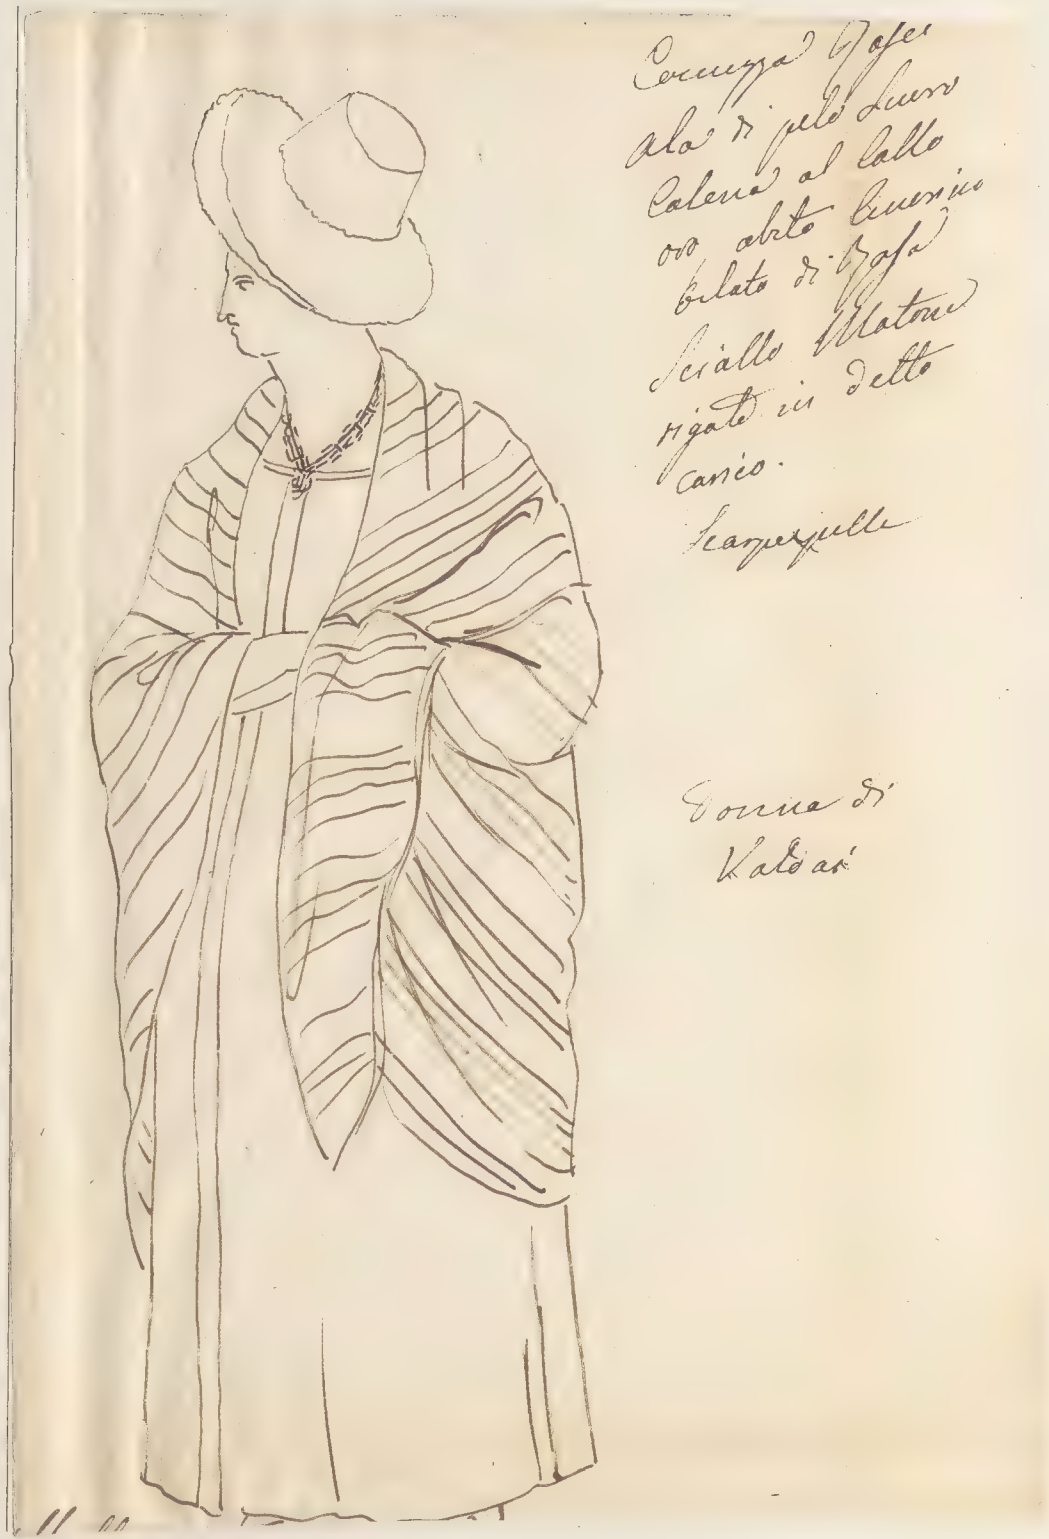 Rosa
ala di pelo scuro
Catena al Collo
oro abito Cenerino
filato di Rosa
Sciallo Matone
rigato in detto
carico.
Scarpe pelle
Donna di
Kaldar